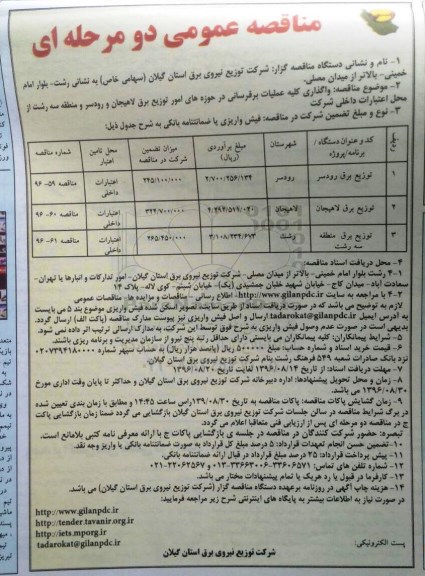 مناقصه عمومی دو مرحله ای
۱- نام و نشانی دستگاه مناقصه گزار: شرکت توزیع نیروی برق استان گیلان (سهامی خاص) به نشانی رشت- بلوار امام
خمینی- بالاتر از میدان مصلی.
۲- موضوع مناقصه: واگذاری کلیه عملیات برقرسانی در حوزه های امور توزیع برق لاهیجان و رودسر و منطقه سه رشت از
محل اعتبارات داخلی شرکت
۳- نوع و مبلغ تضمین شرکت در مناقصه: فیش واریزی یا ضمانتنامه بانکی به شرح جدول ذیل:
ردیف کد و عنوان دستگاه / برنامه/پروژه شهرستان مبلغ برآوردی (ریال) میزان تضمین شرکت در مناقصه محل تامین اعتبار شماره مناقصه
۱ توزیع برق رودسر رودسر ۲/۷۰۰/۲۵۶/۱۳۴ ۲۴۵/۱۰۰/۰۰۰ اعتبارات داخلی مناقصه ۵۹- ۹۶
۲ توزیع برق لاهیجان لاهیجان ۳۲۴/۷۰۰/۰۰۰ اعتبارات داخلی مناقصه ۶۰- ۹۶
۳ توزیع برق منطقه سه رشت رشت ۲۶۵/۴۵۰/۰۰۰ اعتبارات داخلی مناقصه ۶۱- ۹۶
۴- محل دریافت اسناد مناقصه:
۴-۱ رشت بلوار امام خمینی- بالاتر از میدان مصلی- شرکت توزیع نیروی برق استان گیلان- امور تدارکات و انبارها یا تهران-
سعادت آباد- میدان کاج- خیابان شهید خلبان جمشیدی (یک)- خیابان شبنم- کوی لاله- پلاک ۱۴
۴-۲ با مراجعه به سایت http://www.gilanpdc.ir- اطلاع رسانی- مناقصات و مزایده ها- مناقصات عمومی
لازم به توضیح می باشد که در صورت دریافت اسناد از طریق سایت، تصویر اسکن شده فیش واریزی موضوع بند ۵ می بایست
به آدرس ایمیل tadarokat@gilanpdc.ir ارسال و اصل فیش واریزی نیز پیوست مدارک مناقصه (پاکت الف) ارسال گردد.
بدیهی است در صورت عدم وصول فیش واریزی به شرح فوق توسط این شرکت، به مدارک ارسالی ترتیب اثر داده نمی شود.
۵- شرایط پیمانکاران: کلیه پیمانکاران می بایستی دارای حداقل رتبه پنج نیرو از سازمان مدیریت و برنامه ریزی باشند.
۶- قیمت خرید اسناد و شماره حساب: مبلغ ۵۰۰۰۰۰ ریال (پانصد هزار ریال) به حساب سپهر شماره
نزد بانک صادرات شعبه ۵۴۹ فرهنگ رشت بنام شرکت توزیع نیروی برق استان گیلان.
۷- مهلت دریافت اسناد: از تاریخ ۱۳۹۶/۰۸/۱۴ لغایت تاریخ ۱۳۹۶/۰۸/۲۰
۸- زمان و محل تحویل پیشنهادها: اداره دبیرخانه شرکت توزیع نیروی برق استان گیلان و حداکثر تا پایان وقت اداری مورخ
۱۳۹۶/۰۸/۳۰ می باشد.
۹- زمان گشایش پاکات مناقصه: پاکات مناقصه به تاریخ راس ساعت ۱۴:۴۵ و مطابق با زمان بندی تعیین شده
در برگ شرایط مناقصه در سالن جلسات شرکت توزیع نیروی برق استان گیلان بازگشایی می گردد ضمنا زمان بازگشایی پاکت
ج در مناقصه دو مرحله ای پس از ارزیابی فنی متعاقبا اعلام می گردد.
تبصره: حضور شرکت کنندگان در مناقصه در جلسه ی بازگشایی پاکات ج با ارائه معرفی نامه کتبی بلامانع است.
۱۰- تضمین حسن انجام تعهدات قرارداد: ۵ درصد مبلغ کل قرارداد به صورت ضمانتنامه بانکی یا واریز وجه نقد.
۱۱- پیش پرداخت قرارداد: ۲۵ درصد مبلغ قرارداد در قبال ارائه ضمانتنامه بانکی.
۱۲- شماره تلفن های تماس: ۳۳۶۰۶۵۷۱-۳۳۶۶۳۰۰۶-۰۱۳ و ۲۲۰۶۲۵۶۷-۰۲۱
۱۳- کارفرما در قبول یا رد هریک یا تمام پیشنهادات مختار می باشد.
۱۴- هزینه چاپ آگهی در روزنامه برعهده دستگاه مناقصه گزار (شرکت توزیع نیروی برق گیلان) می باشد.
در صورت نیاز به اطلاعات بیشتر به پایگاه های اینترنتی شرح زیر مراجعه فرمایید:
http://www.gilanpdc.ir
http://tender.tavanir.org.ir
http://iets.mporg.ir
پست الکترونیکی: tadarokat@gilanpdc.ir
شرکت توزیع نیروی برق استان گیلان